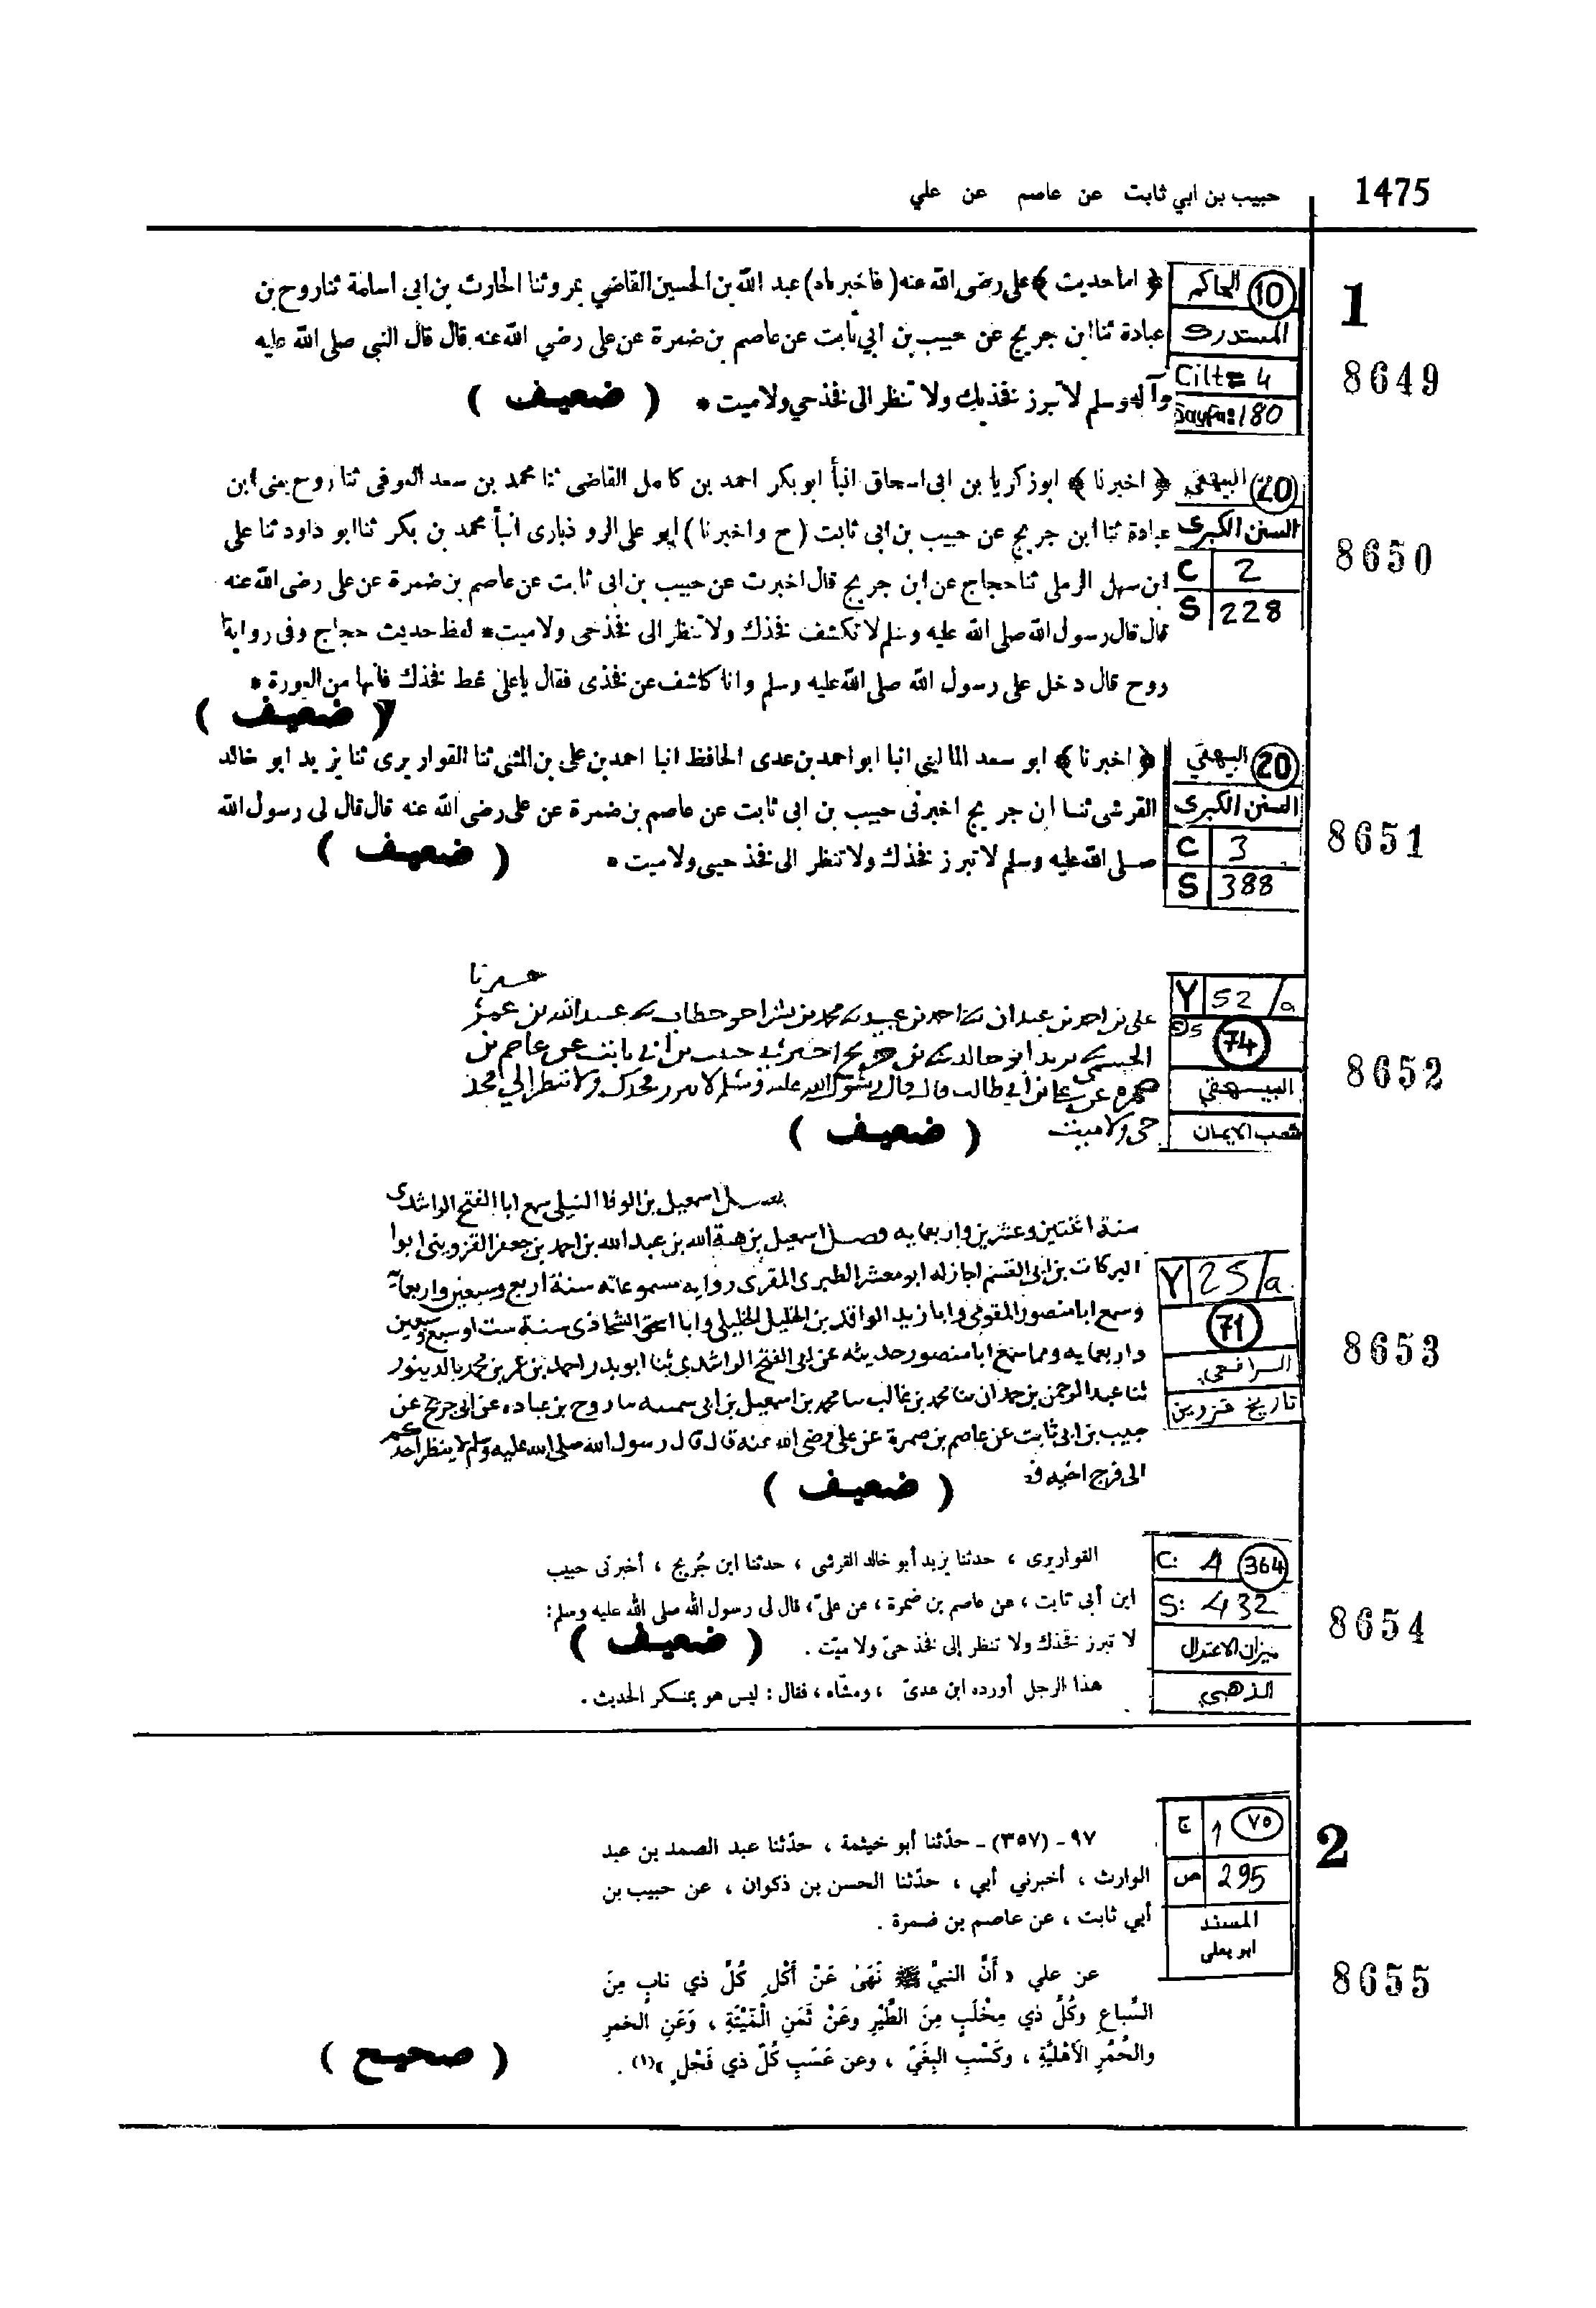 1475
حبيب بن ابي ثابت عن عاصم عن علي
1
8649
10 الحاكم
المستدرك
Cilt= 4
Sayfa: 180
﴿ اما حديث ﴾ على رضى الله عنه ( فاخبرناه ) عبد الله بن الحسين القاضي بمرو ثنا الحارث بن ابى اسامة ثنا روح بن
عبادة ثنا ابن جريج عن حبيب بن ابي ثابت عن عاصم بن ضمرة عن على رضي الله عنه قال قال النبى صلى الله عليه
وآله وسلم لا تبرز فخذيك ولا تنظر الى فخذ حي ولا ميت * ( ضعيف )
8650
20 البيهقي
السنن الكبرى
C 2
S 228
﴿ اخبرنا ﴾ ابو زكريا بن ابى اسحاق انبأ ابو بكر احمد بن كامل القاضى ثنا محمد بن سعد العوفى ثنا روح يعنى ابن
عبادة ثنا ابن جريج عن حبيب بن ابى ثابت ( ح واخبرنا ) ابو على الروذبارى انبأ محمد بن بكر ثنا ابو داود ثنا على
ابن سهل الرملى ثنا حجاج عن ابن جريج قال اخبرت عن حبيب بن ابى ثابت عن عاصم بن ضمرة عن على رضى الله عنه
قال قال رسول الله صلى الله عليه وسلم لا تكشف فخذك ولا تنظر الى فخذ حى ولا ميت * لفظ حديث حجاج وفى رواية
روح قال دخل على رسول الله صلى الله عليه وسلم وانا كاشف عن فخذى فقال ياعلى غط فخذك فانها من العورة *
( ضعيف )
8651
20 البيهقي
السنن الكبرى
C 3
S 388
﴿ اخبرنا ﴾ ابو سعد الماليني انبا ابو احمد بن عدى الحافظ انبا احمد بن على بن المثنى ثنا القواريرى ثنا يزيد ابو خالد
القرشى ثنا ابن جريج اخبرنى حبيب بن ابى ثابت عن عاصم بن ضمرة عن على رضى الله عنه قال قال لى رسول الله
صلى الله عليه وسلم لا تبرز فخذك ولا تنظر الى فخذ حيى ولا ميت * ( ضعيف )
8652
Y 52/a
74
البيهقي
شعب الايمان
على بن احمد بن عبدان احمد بن عبيد محمد بن بشر اخو خطاب عبد الله بن عمر
يزيد ابو خالد بن جريج اخبرني حبيب بن ابي ثابت عن عاصم بن
ضمرة عن علي بن أبي طالب قال قال رسول الله عليه وسلم لا تبرز فخذك ولا تنظر إلي فخذ
حى ولا ميت ( ضعيف )
8653
Y 25/a
71
الرافعي
تاريخ قزوين
اسمعيل بن الوفا النيلى سمع ابا الفتح الراشدى
سنة اثنتين وعشرين واربعمايه فصل اسمعيل بن هبة الله بن عبد الله بن احمد بن جعفر القزوينى ابوا
البركات بن ابى القسم اجاز له ابو معشر الطبرى المقرى رواية مسموعاته سنة اربع وسبعين واربعمائة
وسمع ابا منصور المقومى وابا زيد الواقد بن الخليل الخليلى وابا اسحق الشحاذى سنة ست او سبع وسبعين
واربعمايه ومما سمع ابا منصور حديثه عن ابى الفتح الراشدى ثنا ابو بدر احمد بن عمر بن محمد بالدينور
ثنا عبد الرحمن بن حمدان ثنا محمد بن غالب ثنا محمد بن اسمعيل بن ابى سمينه ثنا روح بن عباده عن ابى جريج عن
حبيب بن ابى ثابت عن عاصم بن ضمرة عن على رضى الله عنه قال قال رسول الله صلى الله عليه وسلم لا ينظر احدكم
الى فرج اخيه ( ضعيف )
8654
C: 4 364
S: 432
ميزان الاعتدال
الذهبي
القواريرى ، حدثنا يزيد أبو خالد القرشى ، حدثنا ابن جُريج ، أخبرنى حبيب
ابن أبى ثابت ، عن عاصم بن ضمرة ، عن علىّ ، قال لى رسول الله صلى الله عليه وسلم :
لا تبرز فخذك ولا تنظر إلى فخذ حىّ ولا ميّت . ( ضعيف )
هذا الرجل أورده ابن عدىّ ، ومشّاه ، فقال : ليس هو بمنكر الحديث .
2
8655
ج ١ ٧٥
ص 295
المسند
ابو يعلى
٩٧ - (٣٥٧) - حدّثنا أبو خيثمة ، حدّثنا عبد الصمد بن عبد
الوارث ، أخبرني أبي ، حدّثنا الحسن بن ذكوان ، عن حبيب بن
أبي ثابت ، عن عاصم بن ضمرة .
عن علي « أَنَّ النبيَّ ﷺ نَهَىٰ عَنْ أَكْلِ كُلِّ ذي نابٍ مِنَ
السِّباعِ وكُلِّ ذي مِخْلَبٍ مِنَ الطَّيْرِ وعَنْ ثَمَنِ الْمَيْتَةِ ، وَعَنِ الخمرِ
والحُمُرِ الأَهْلِيَّةِ ، وكَسْبِ البِغَيِّ ، وعن عَسْبِ كُلِّ ذي فَحْلٍ »(١) . ( صحيح )